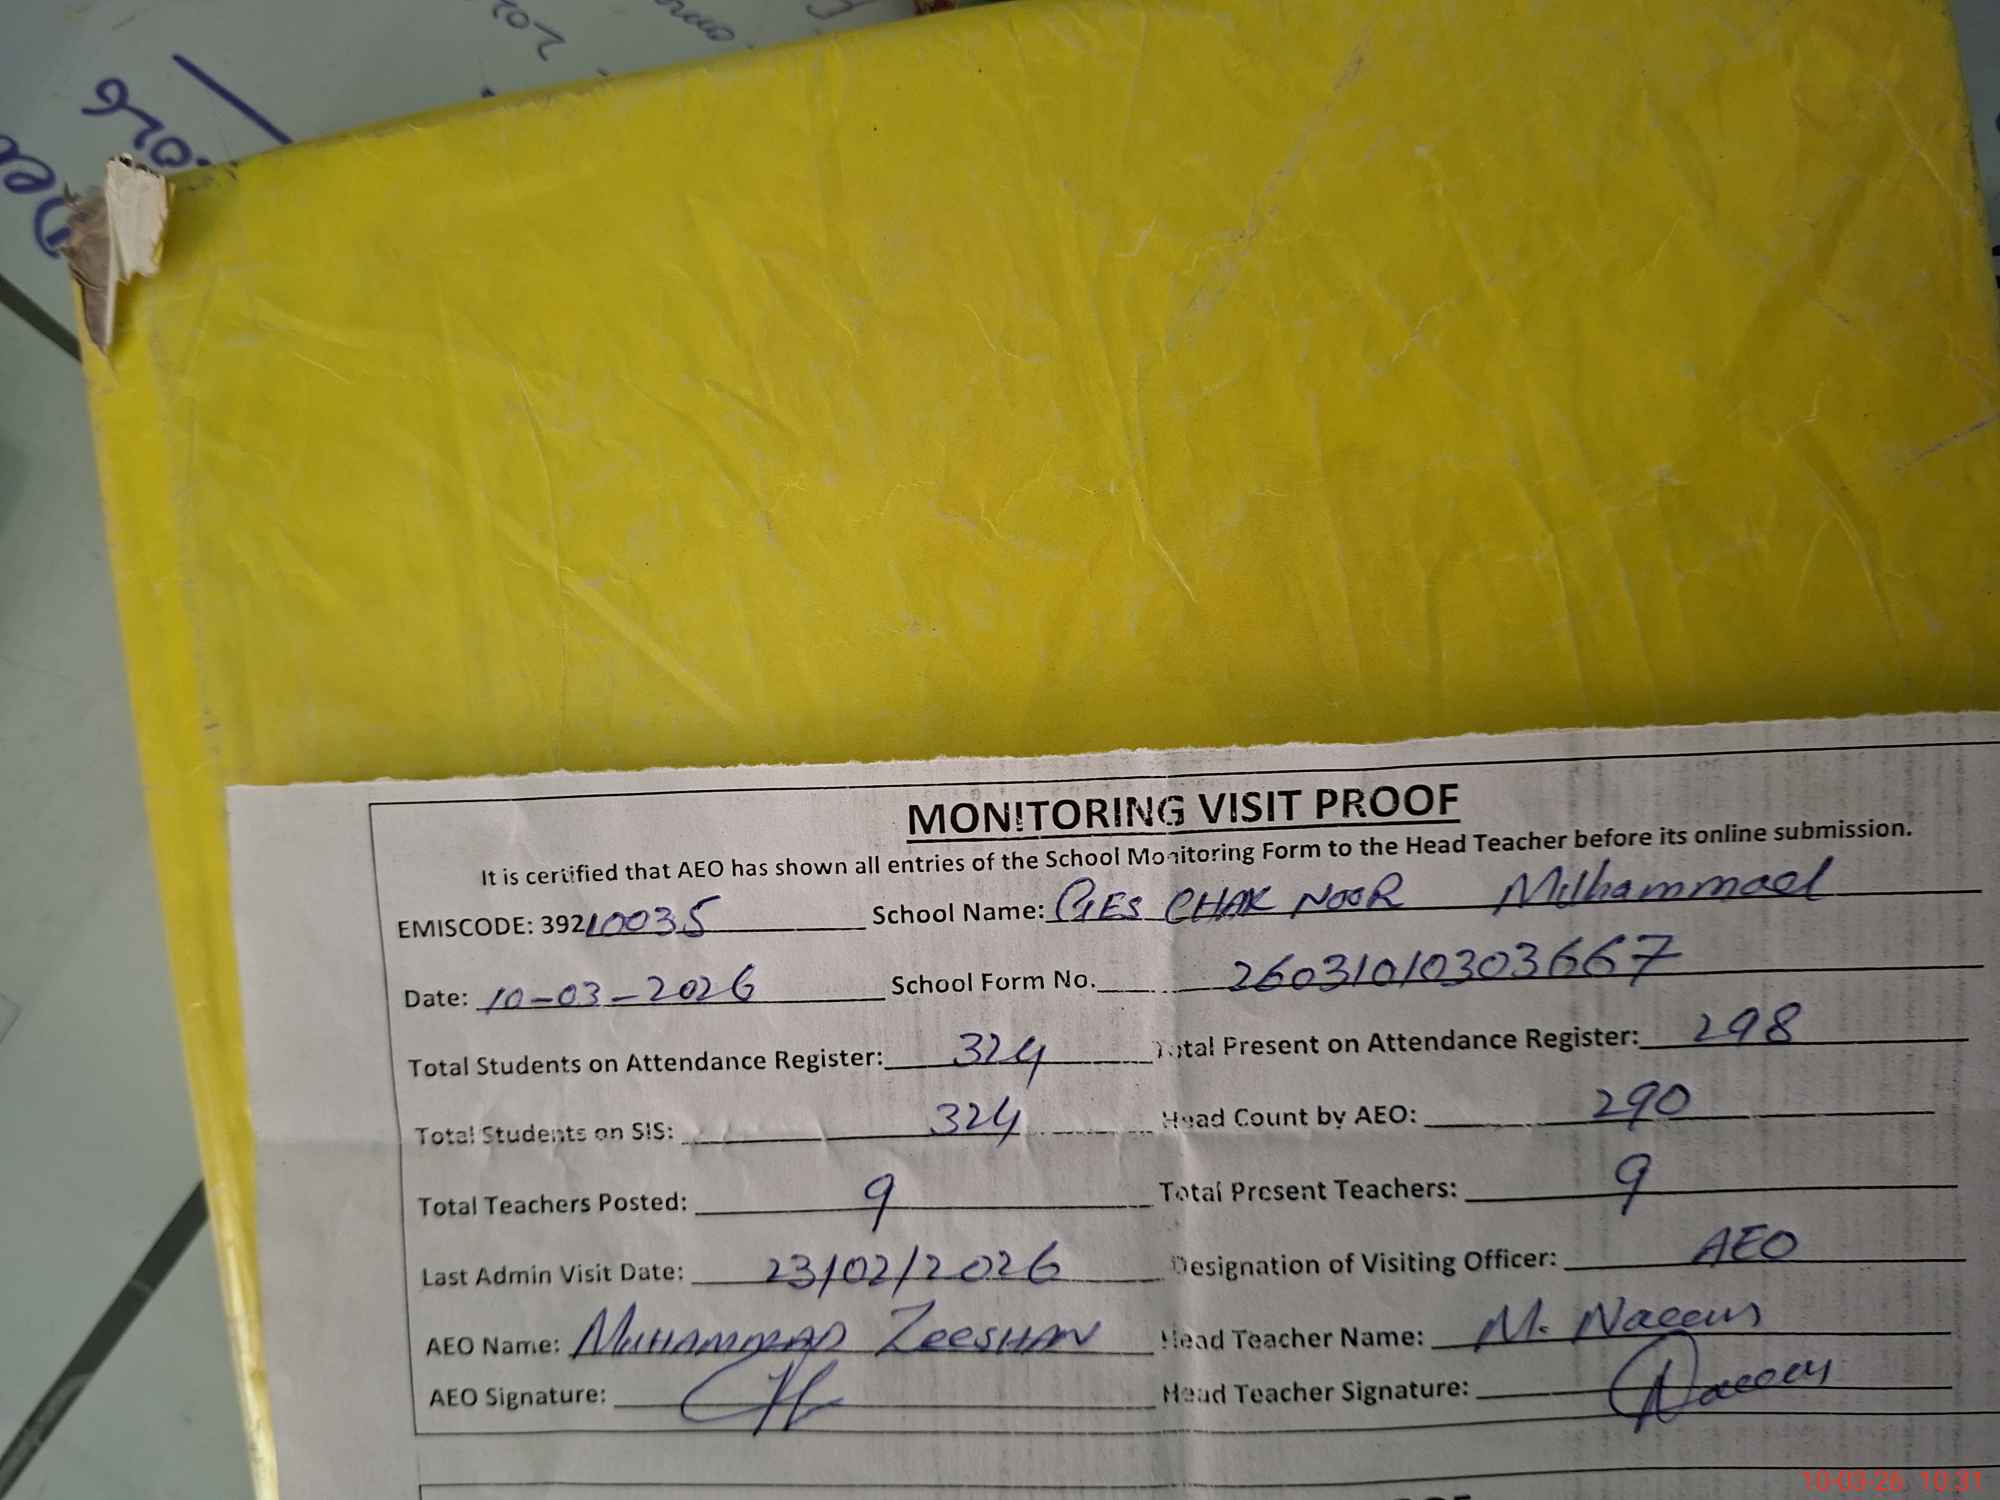 2026
MONITORING VISIT PROOF
It is certified that AEO has shown all entries of the School Monitoring Form to the Head Teacher before its online submission.
EMISCODE: 39210035 School Name: GES CHAK NOOR Muhammad
Date: 10-03-2026 School Form No. 26031010303667
Total Students on Attendance Register: 324 Total Present on Attendance Register: 298
Total Students on SIS: 324 Head Count by AEO: 290
Total Teachers Posted: 9 Total Present Teachers: 9
Last Admin Visit Date: 23/02/2026 Designation of Visiting Officer: AEO
AEO Name: MUHAMMAD ZEESHAN Head Teacher Name: M. Naeem
AEO Signature: Head Teacher Signature: Naeem
10-03-26 10:31